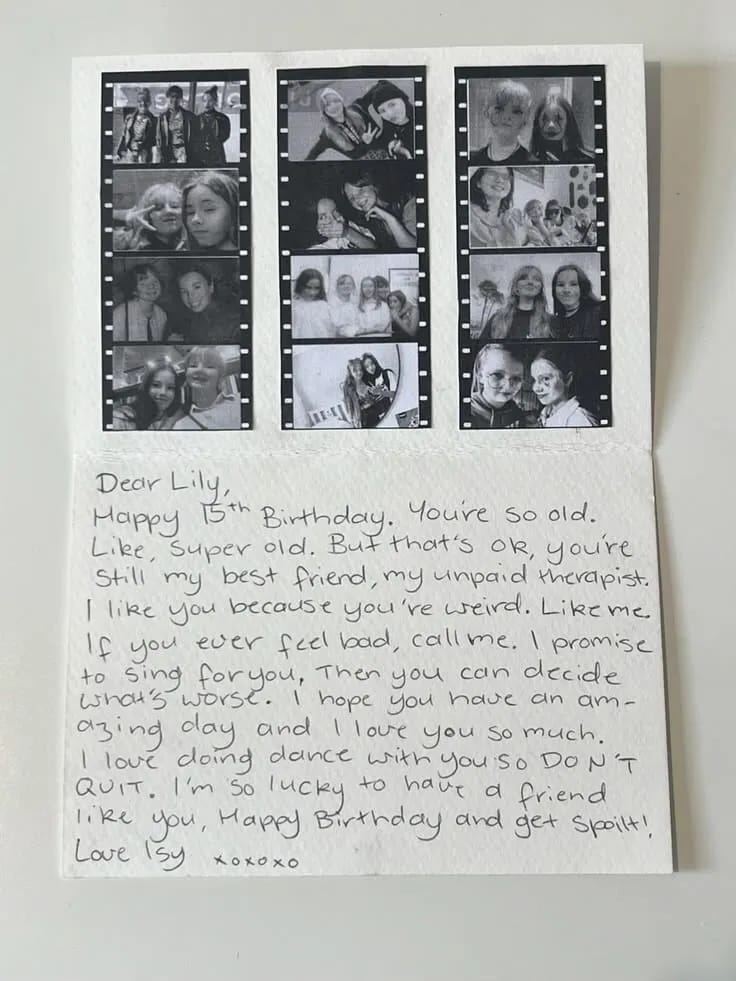 Dear Lily,
Happy 15th Birthday. You're so old.
Like, super old. But that's ok, you're
still my best friend, my unpaid therapist.
I like you because you're weird. Like me.
If you ever feel bad, call me. I promise
to sing for you, Then you can decide
what's worse. I hope you have an am-
azing day and I love you so much.
I love doing dance with you so DON'T
QUIT. I'm so lucky to have a friend
like you, Happy Birthday and get spoilt!
Love Isy xoxoxo